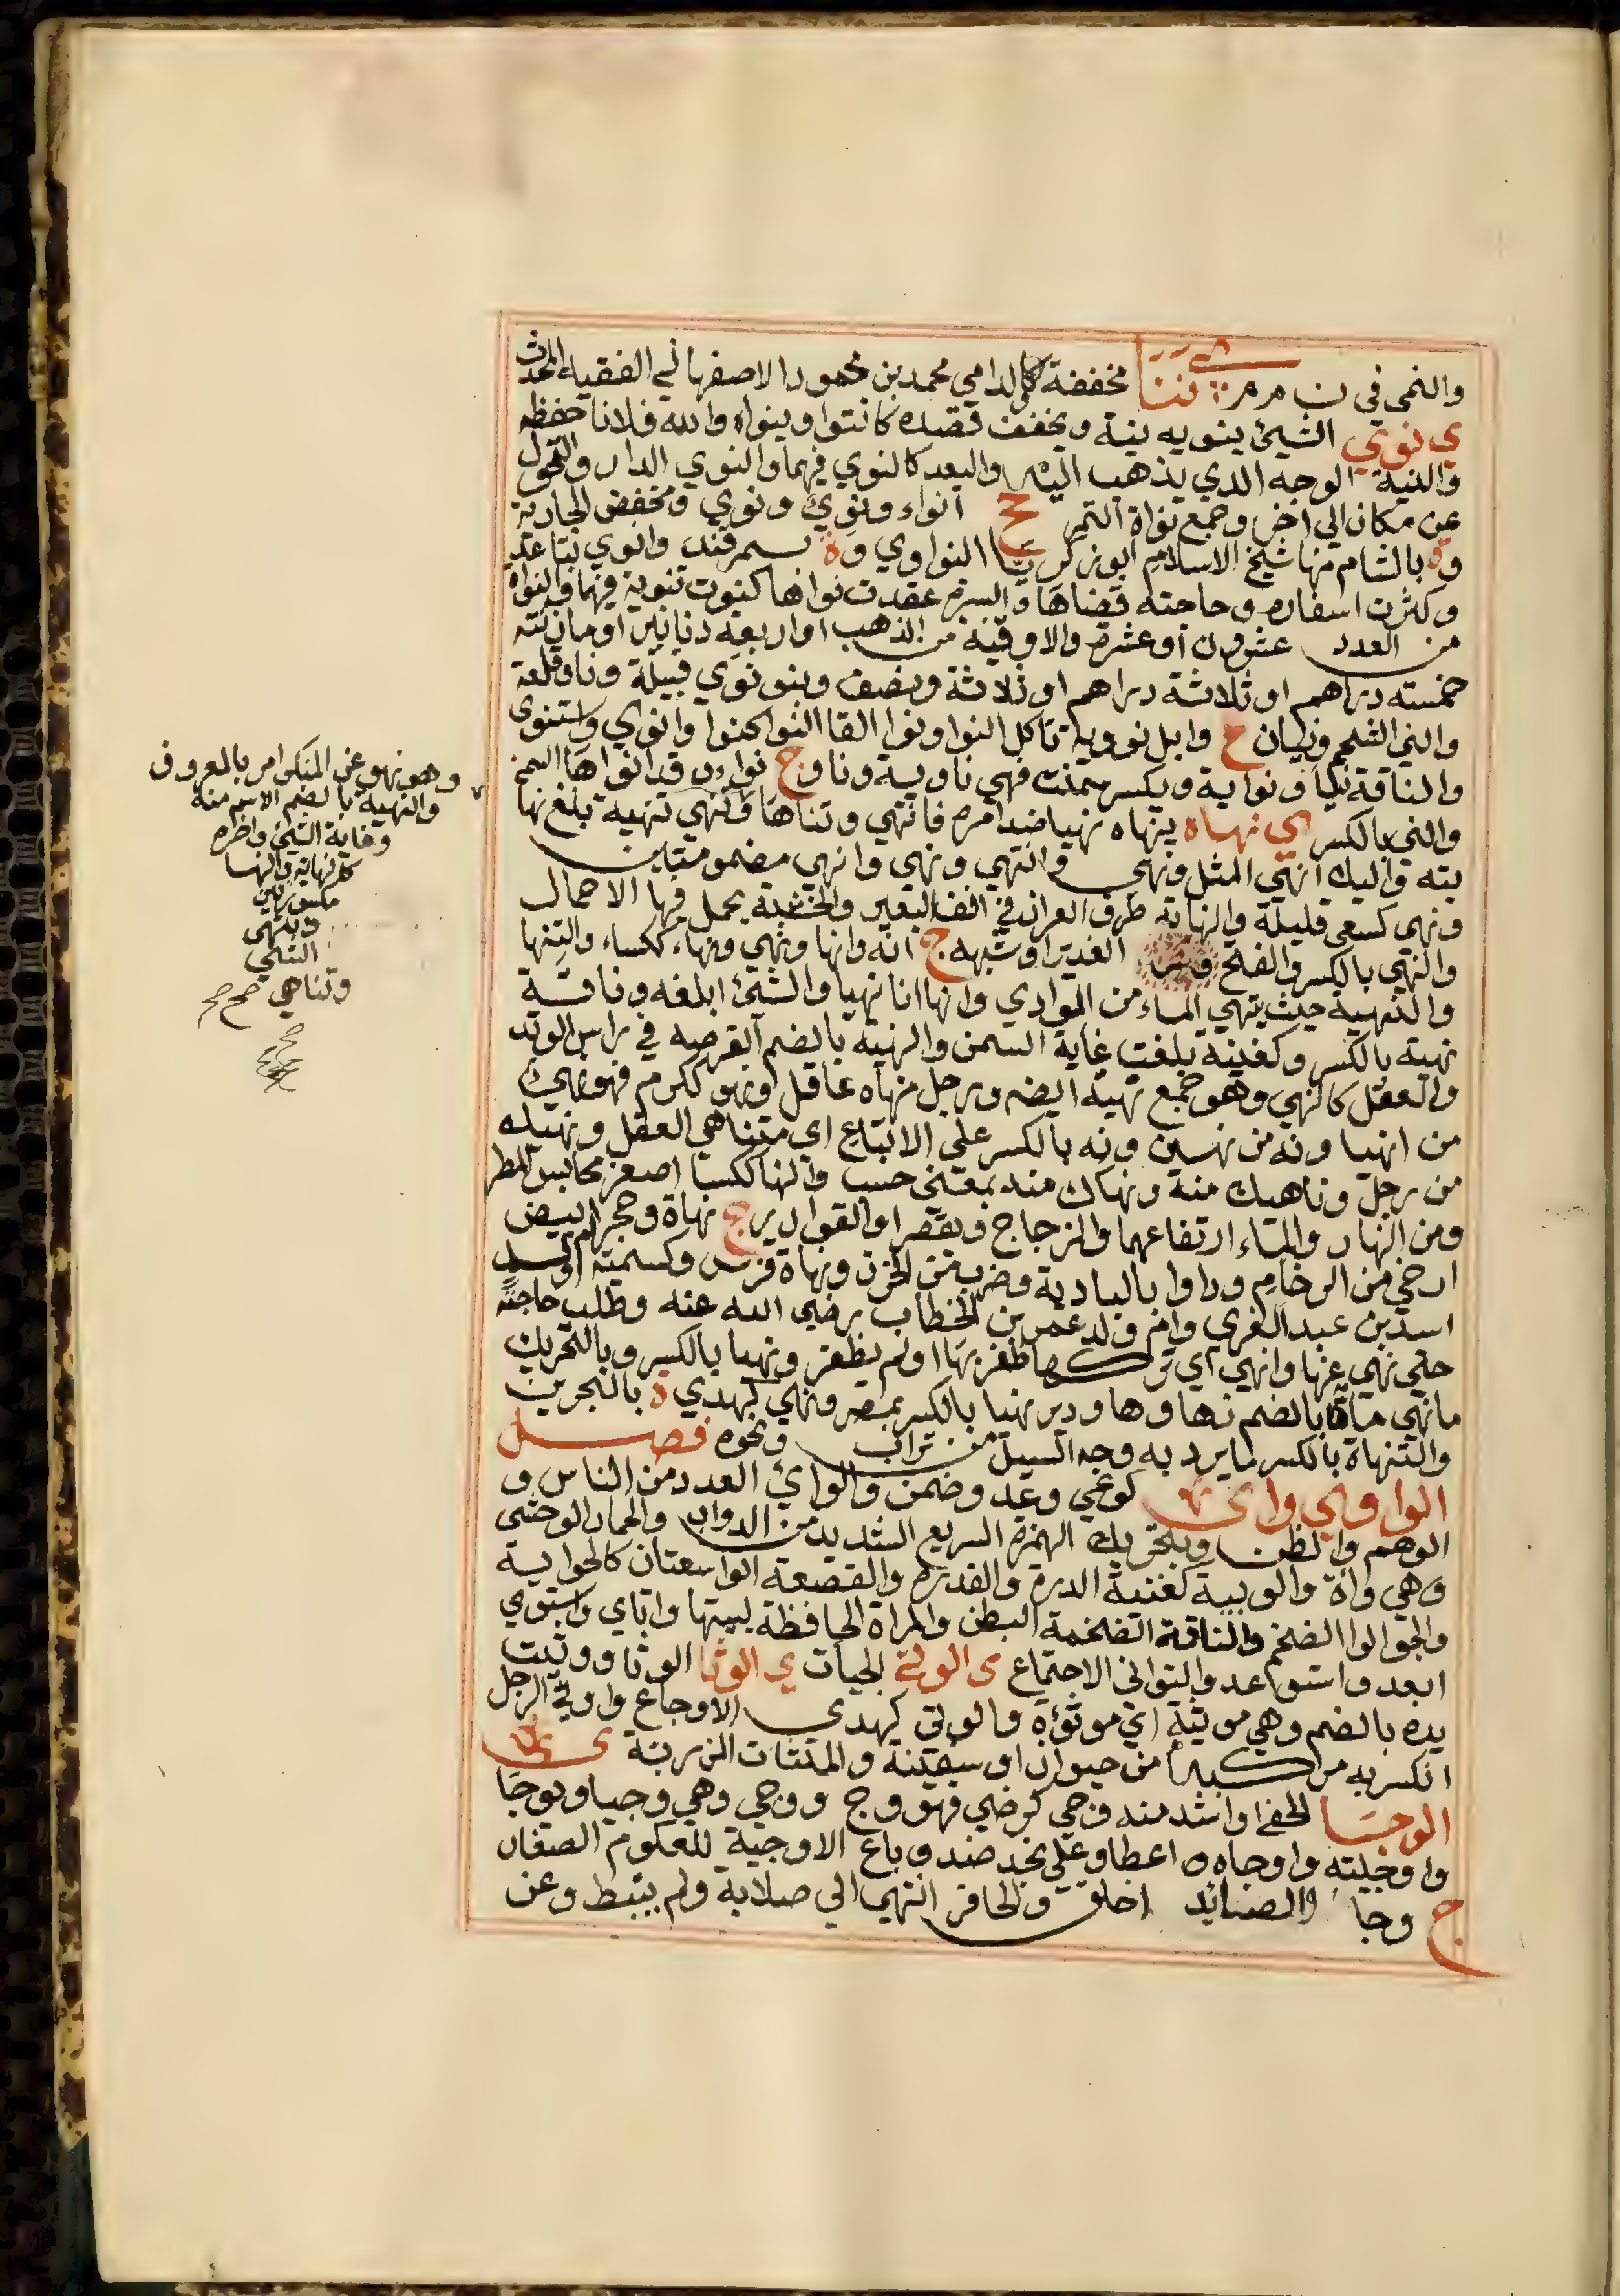 والنمى في ن م م ننا مخففة كما لوالدامي محمد بن محمود الاصفهاني الفقيه المحدث
ي نوي الشيئ ينويه نية ويخفف قصده كانتوا وينواه والله فلانا حفظه
والنية الوجه الدي يذهب اليه والبعد كالنوي فيهما والنوي الدار والتحول
عن مكان الي اخر وجمع نواة التمر ج انواء ونوي ونوي ومخفض الجارية
وة بالشام منها شيخ الاسلام ابو زكريا النواوي وة بسمرقند وانوي تباعد
وكثرت اسفاره وحاجته قضاها والبسرة عقدت نواها كنوت تنوية فيهما والنواة
من العدد عشرون او عشرة والاوقية من الذهب او اربعة دنانير او مازنته
خمسته دراهم او ثلاثة دراهم او ثلاثة ونصف وبنو نوي قبيلة وناو قلعة
والني الشحم ونيان ع وابل نووية تاكل النوا ونوا القا النوا كنوا وانوي واستنوى
والناقة نيا ونواية ويكسر سمنت فهي ناوية وناو ج نواء وقد انواها السمن
والني بالكسر ي نهاه ينهاه نهيا ضد امره فانتهي وتناها وتنهي تنهية بلغ نها
يته واليك انهي المثل ونهى وانتهي ونهي وانهي مضمومتاين
ونهى كسعى قليلة والنهاية طرف العران في انف البعير والخشبة يحمل فيها الاحمال
والنهي بالكسر والفتح الغدير او شبهه ج انه وانها ونهي ونهاء ككساء والتنها
والتنهية حيث ينتهي الماء من الوادي وانها انا نهيا والشئ ابلغه وناقة
نهية بالكسر وكغنية بلغت غاية السمن والنهية بالضم الفرصه في راس الوتد
والعقل كالنهي وهو جمع نهية ايضه ورجل منهاه عاقل ونهو ككرم فهو نهي
من انهيا ونه من نهين ونه بالكسر على الاتباع اي متناهي العقل ونهيك
من رجل وناهيك منه ونهاك منه بمعنى حسب والنها ككسا اصغر محابس المطر
ومن النهار والماء ارتفاعهما والزجاج ويقصر او القوارير ج نهاة وحجر ابيض
ارخي من الرخام ودوا بالبادية وضرب من الخرز ونهاة فرس وكسمية ام ولد
اسد بن عبد العزي وام ولد عمر بن الخطاب رضي الله عنه وطلب حاجته
حتي نهي عنها وانهي اي تركها ظفر بها او لم يظفر ونهيا بالكسر وبالتحريك
ما ونهي مياة بالضم نهاوها ودير نهيا بالكسر بمصر ونهي كهدي ة بالبحرين
والتنهاة بالكسر ما يرد به وجه السيل من تراب ونحوه فصل
الواو ي واى كوعي وعد وضمن والواي العدد من الناس و
الوهم والظن وبتحريك الهمزة السريع الشديد من الدواب والحمار الوحشى
وهي واة والوييه كغنية الدرة والقدرة والقصعة الواسعتان كالحوالية
والجوالوا الضخم والناقة الضخمة البطن والمراة الحافظة لبيتها واتاي واستوي
ابعد واستواعد والتواني الاجتماع ى الوتى الجيات ي الوثا الوثا ووثيت
يده بالضم وهي موثية اي موثوءة والوتي كهدي الاوجاع واوثي الرجل
انكسر به مركبه من حيوان او سفينة والمتثات المزربة ي
الوجا الحفا او اشد منه وجي كرضي فهو وج ووجي وهي وجيا وتوجا
واوجيته واوجاه اعطا وعلي نجد ضد وباع الاوجية للعكوم الصغار
ج وجا والصائد اخلق والحافر انتهي الي صلابة ولم ينبط وعن
وهو نهو عن المنكر امر بالمعروف
والنهية بالضم الاسم منه
وغاية الشئ واخره
كالنهاية والنها
مكسورتين
وانتهى
الشئ
وتناهي صح صح